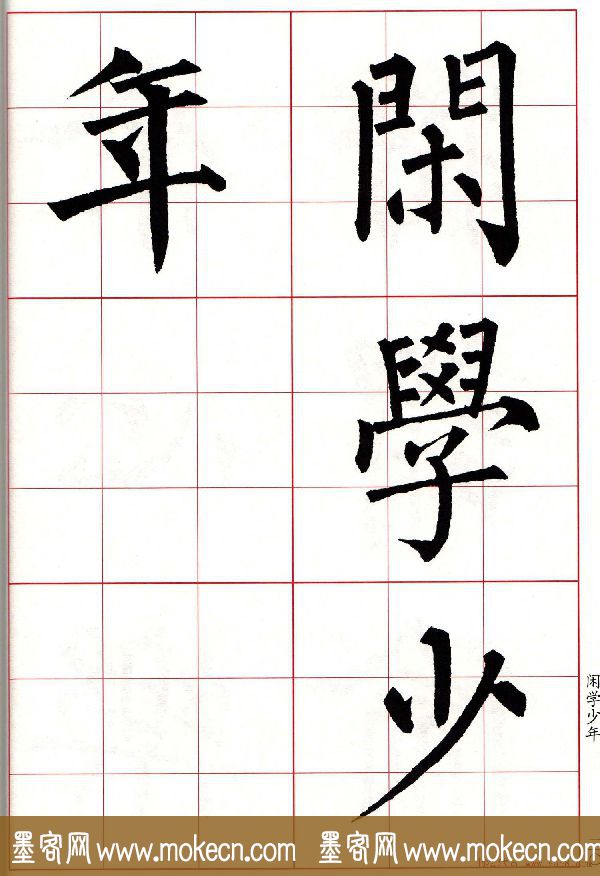 閑學少
年
闲学少年
墨客网 www.mokecn.com 墨客网 www.mokecn.com